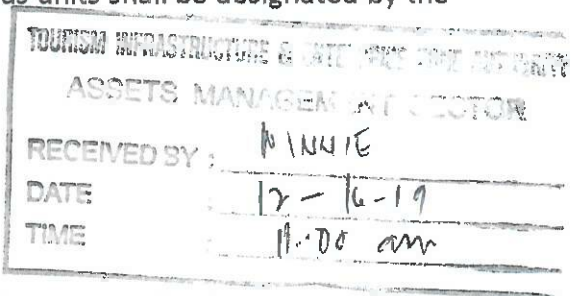 as units shall be designated by the
TOURISM INFRASTRUCTURE &
ASSETS MANAGEMENT SECTOR
RECEIVED BY : MINNIE
DATE : 12-16-19
TIME : 11:00 am